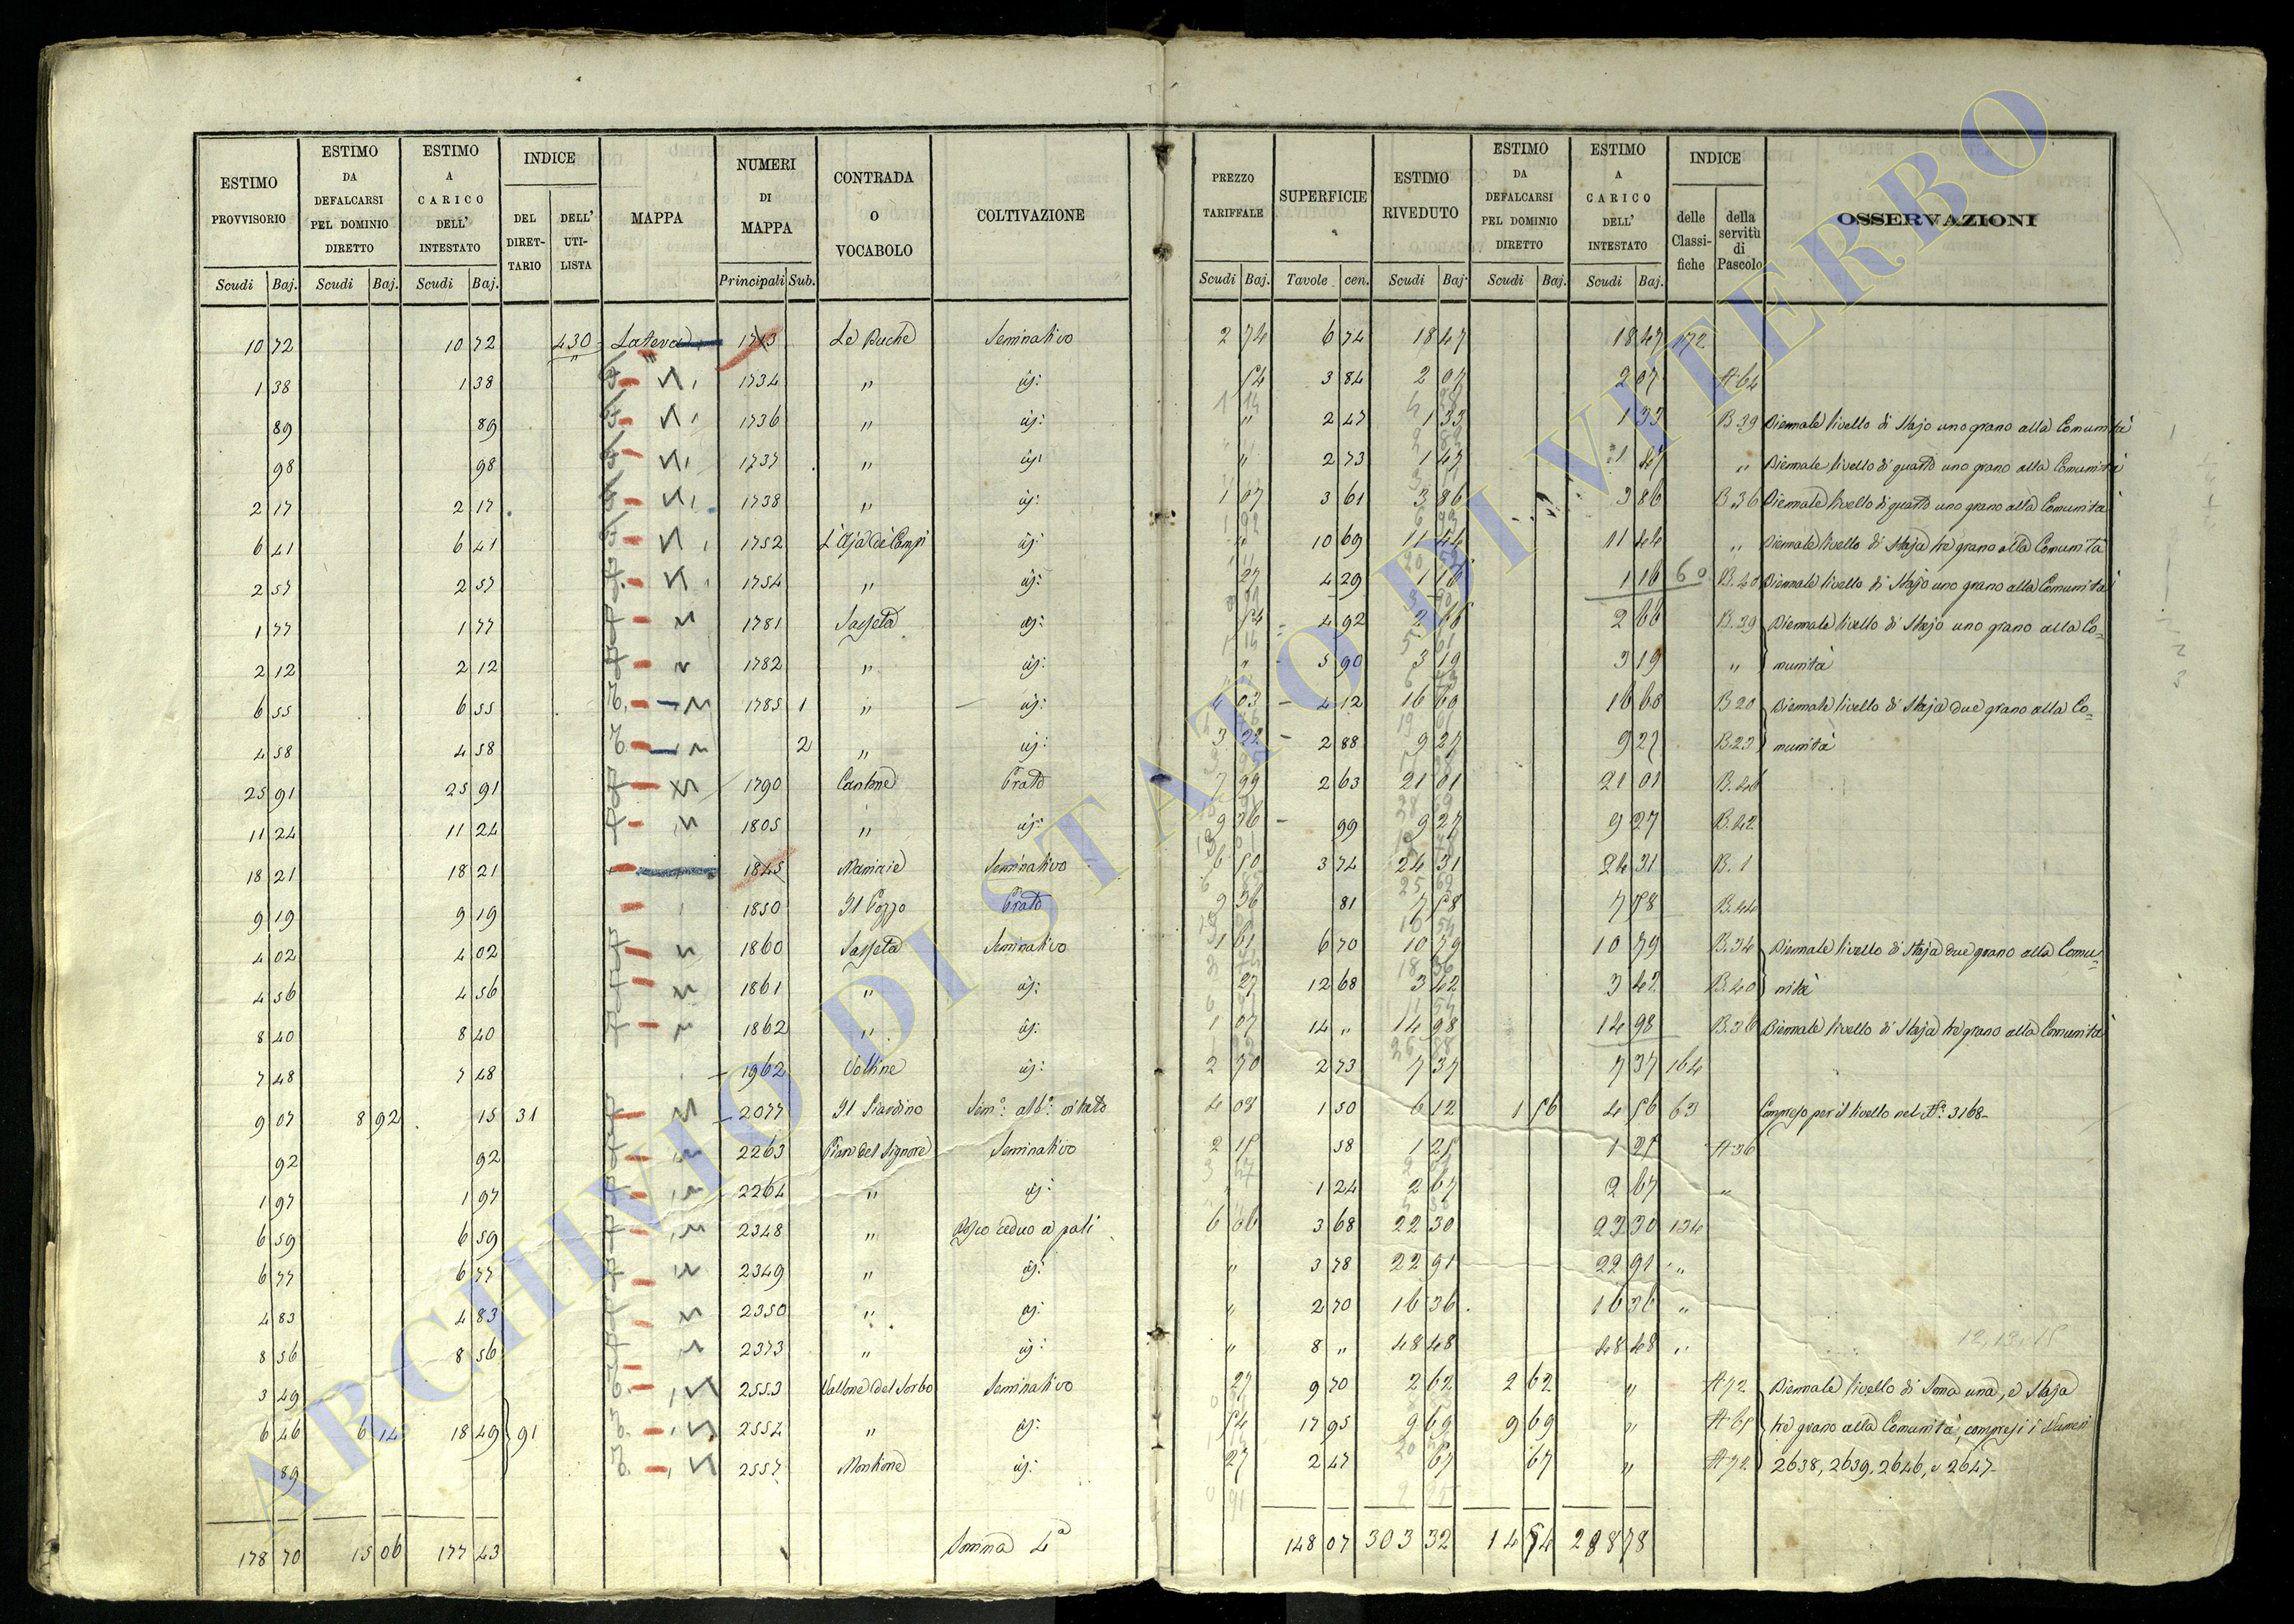 ESTIMO PROVVISORIO | ESTIMO DA DEFALCARSI PEL DOMINIO DIRETTO | ESTIMO A CARICO DELL' INTESTATO | INDICE | MAPPA | NUMERI DI MAPPA | CONTRADA O VOCABOLO | COLTIVAZIONE | PREZZO TARIFFALE | SUPERFICIE | ESTIMO RIVEDUTO | ESTIMO DA DEFALCARSI PEL DOMINIO DIRETTO | ESTIMO A CARICO DELL' INTESTATO | INDICE | OSSERVAZIONI
DEL DIRETTARIO | DELL' UTILISTA | delle Classifiche | della servitù di Pascolo
Scudi | Baj. | Scudi | Baj. | Scudi | Baj. | Principali | Sub. | Scudi | Baj. | Tavole | cen. | Scudi | Baj. | Scudi | Baj. | Scudi | Baj.
10 72 | 10 72 | 430 | Latera | 1713 | Le Buche | Seminativo | 2 74 | 6 74 | 18 47 | 18 47 | 172
1 38 | 1 38 | 1734 | " | id: | 54 | 3 84 | 2 07 | 2 07 | A 64
89 | 89 | 1736 | " | id: | " | 2 47 | 1 33 | 1 33 | B 39 | Biennale livello di Stajo uno grano alla Comunità
98 | 98 | 1737 | " | id: | " | 2 73 | 1 47 | 1 47 | " | Biennale livello di quarto uno grano alla Comunità
2 17 | 2 17 | 1738 | " | id: | 1 07 | 3 61 | 3 86 | 3 86 | B 36 | Biennale livello di quarto uno grano alla Comunità
6 41 | 6 41 | 1752 | L'Aja de Campi | id: | " | 10 69 | 11 44 | 11 44 | " | Biennale livello di Staja tre grano alla Comunità
2 57 | 2 57 | 1754 | " | id: | 27 | 4 29 | 1 16 | 1 16 | 60 | B. 40 | Biennale livello di Stajo uno grano alla Comunità
1 77 | 1 77 | 1781 | Sasseta | id: | 54 | 4 92 | 2 66 | 2 66 | B. 39 | Biennale livello di Stajo uno grano alla Co=
2 12 | 2 12 | 1782 | " | id: | " | 5 90 | 3 19 | 3 19 | " | munità
6 55 | 6 55 | 1785 | 1 | " | id: | 4 03 | 4 12 | 16 60 | 16 60 | B 20 | Biennale livello di Staja due grano alla Co=
4 58 | 4 58 | 2 | " | id: | 3 22 | 2 88 | 9 27 | 9 27 | B. 23 | munità
25 91 | 25 91 | 1790 | Cantone | Prato | 7 99 | 2 63 | 21 01 | 21 01 | B. 46
11 24 | 11 24 | 1805 | " | id: | 9 36 | 99 | 9 27 | 9 27 | B. 42
18 21 | 18 21 | 1845 | Seminativo | 6 50 | 3 74 | 24 31 | 24 31 | B. 1
9 19 | 9 19 | 1850 | Il Pozzo | Prato | 9 36 | 81 | 7 58 | 7 58 | B. 44
4 02 | 4 02 | 1860 | Sasseta | Seminativo | 1 61 | 6 70 | 10 79 | 10 79 | B. 34 | Biennale livello di Staja due grano alla Comu=
4 56 | 4 56 | 1861 | " | id: | 27 | 12 68 | 3 42 | 3 42 | B. 40 | nità
8 40 | 8 40 | 1862 | " | id: | 1 07 | 14 " | 14 98 | 14 98 | B. 36 | Biennale livello di Staja tre grano alla Comunità
7 48 | 7 48 | 1962 | id: | 2 70 | 2 73 | 7 37 | 7 37 | 164
9 07 | 8 92 | 15 | 31 | 2077 | Il Giardino | Sem.o alb.o vitato | 4 08 | 1 50 | 6 12 | 1 56 | 4 56 | 63 | Compreso per il livello nel N.o 3168
92 | 92 | 2263 | Pian del Signore | Seminativo | 2 15 | 58 | 1 25 | 1 25 | A 36
1 97 | 1 97 | 2264 | " | id: | " | 1 24 | 2 67 | 2 67 | "
6 59 | 6 59 | 2348 | " | Bosco ceduo a pali | 6 06 | 3 68 | 22 30 | 22 30 | 124
6 77 | 6 77 | 2349 | " | id: | " | 3 78 | 22 91 | 22 91 | "
4 83 | 4 83 | 2350 | " | id: | " | 2 70 | 16 36 | 16 36 | "
8 56 | 8 56 | 2373 | " | id: | " | 8 " | 48 48 | 48 48 | "
3 49 | 2553 | Vallone del Sorbo | Seminativo | 27 | 9 70 | 2 62 | 2 62 | " | A 72 | Biennale livello di Soma una, e Staja
6 46 | 6 14 | 18 49 | 91 | 2554 | " | id: | 54 | 17 95 | 9 69 | 9 69 | " | A 65 | tre grano alla Comunità, compresi i Numeri
89 | 2557 | Montione | id: | 27 | 2 47 | 67 | 67 | " | A 72 | 2638, 2639, 2646, e 2647
178 70 | 15 06 | 177 43 | Somma 4a | 148 07 | 303 32 | 14 54 | 288 78
ARCHIVIO DI STATO DI VITERBO